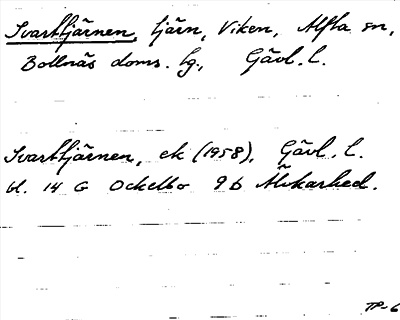 Svarttjärnen, tjärn, Viken, Alfta sn,
Bollnäs doms. lg., Gävl. l.
Svarttjärnen, ek (1958), Gävl. l.
bl. 14 G Ockelbo 9 b Älvkarhed.
TP-6